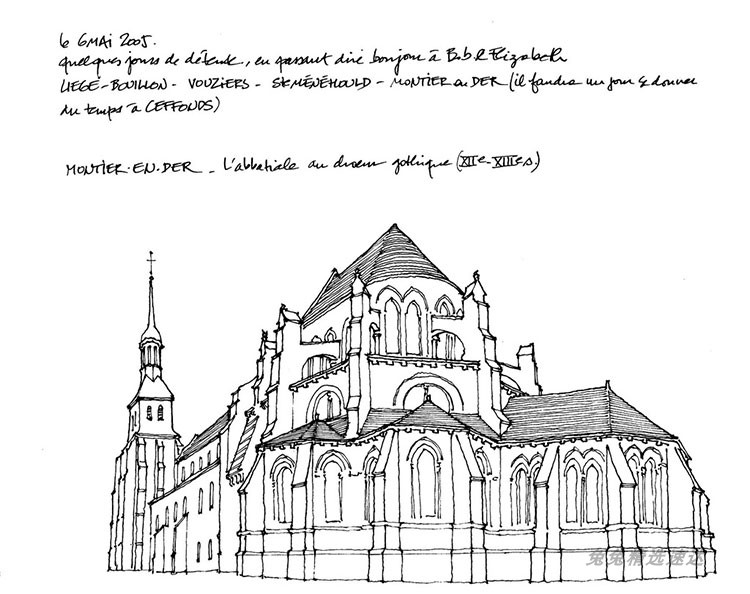 6 MAI 2005.
quelques jours de détente, en passant dire bonjour à Bob & Elizabeth
LIEGE - BOUILLON - VOUZIERS - Ste MÉNÉHOULD - MONTIER en DER (il faudra un jour & donner
du temps à CEFFONDS)
MONTIER-EN-DER - L'abbatiale au chœur gothique (XIIe-XIIIes.)
兔兔精选速达